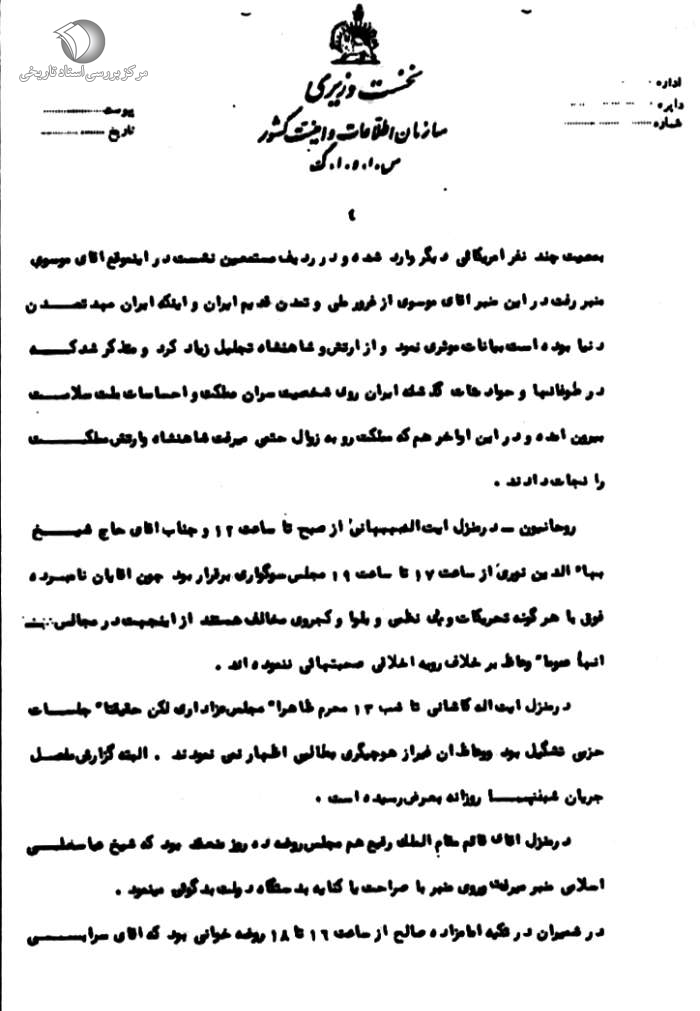 مرکز بررسی اسناد تاریخی
نخست وزیری
سازمان اطلاعات و امنیت کشور
س.ا.و.ا.ک
اداره
دایره
شماره
پیوست
تاریخ
بمعیت چند نفر امریکائی دیگر وارد شده و در ردیف مستمعین نشست در اینموقع اقای موسوی
منبر رفت در این منبر اقای موسوی از غرور ملی و تمدن قدیم ایران و اینکه ایران مهد تمدن
دنیا بوده است بیانات موثری نمود و از ارتش و شاهنشاه تجلیل زیاد کرد و متذکر شد که
در طوفانها و حوادثات گذشته ایران روی شخصیت سران مملکت و احساسات ملت سلامت
بیرون امده و در این اواخر هم که مملکت رو به زوال حتمی میرفت شاهنشاه و ارتش مملکت
را نجات دادند .
روحانیون ـ در منزل ایت اله بهبهانی از صبح تا ساعت ۱۲ و جناب اقای حاج شیخ
بهاء الدین نوری از ساعت ۱۷ تا ساعت ۱۹ مجلس سوگواری برقرار بود چون اقایان نامبرده
فوق با هر گونه تحریکات و بی نظمی و بلوا و کجروی مخالف هستند از اینجهت در مجالس
انها عموما" وعاظ بر خلاف رویه اخلالی صحبتهائی ننموده اند .
در منزل ایت اله کاشانی تا شب ۱۳ محرم ظاهرا" مجلس عزاداری لکن حقیقتا" جلسات
حزبی تشکیل بود و وعاظ ان غیر از هوچیگری مطالبی اظهار نمی نمودند . البته گزارش مفصل
جریان شبنهـا روزانه بعرض رسیده است .
در منزل اقای قائم مقام الملک رفیع هم مجلس روضه ده روز منعقد بود که شیخ عباسعلی
اسلامی منبر میرفت و روی منبر با صراحت یا کنایه به دستگاه دولت بدگوئی مینمود .
در شمیران در تکیه امامزاده صالح از ساعت ۱۶ تا ۱۸ روضه خوانی بود که اقای سرابی